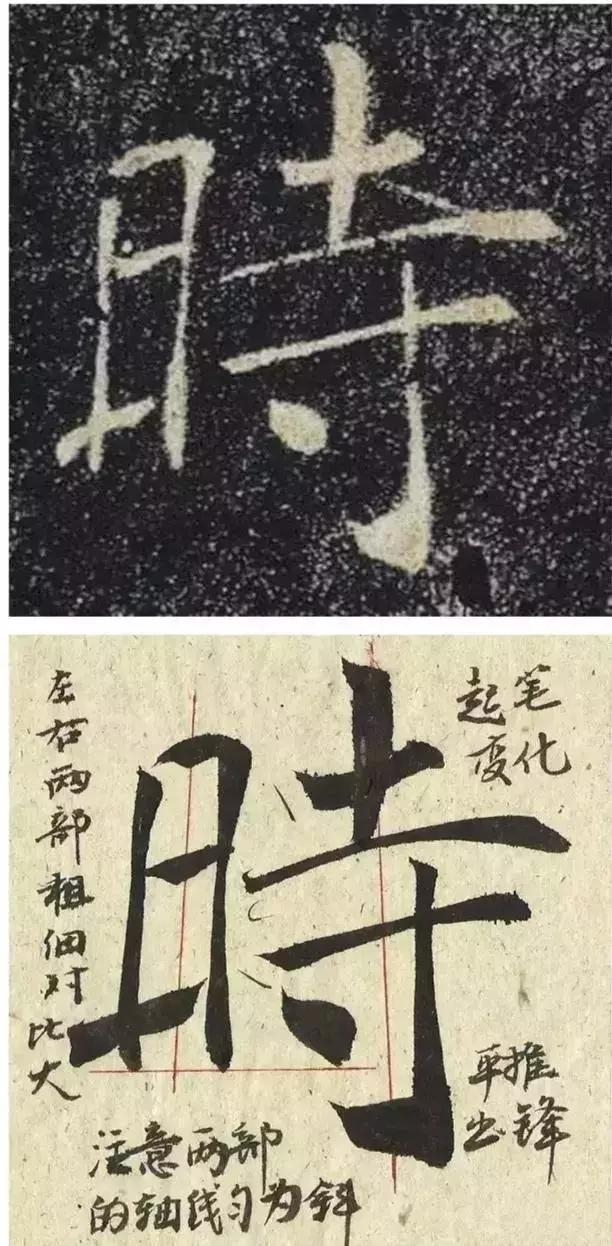 時
左右两部粗细对比大
時
起笔
变化
平推
出锋
注意两部
的轴线匀为斜